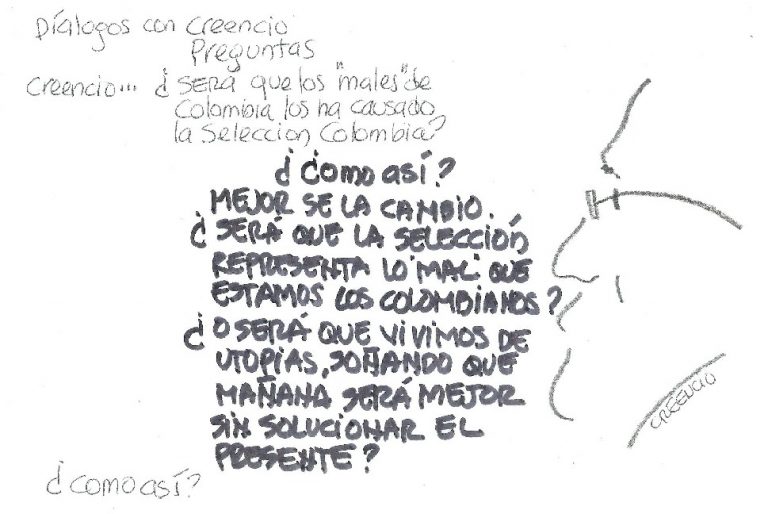 Díalogos con Creencio
Preguntas
Creencio... ¿SERÁ que los "males" de
Colombia los ha causado
la Selección Colombia?
¿Cómo así?
MEJOR SE LA CAMBIO.
¿SERÁ QUE LA SELECCIÓN,
REPRESENTA LO "MAL" QUE
ESTAMOS LOS COLOMBIANOS?
¿O SERÁ QUE VIVIMOS DE
UTOPÍAS, SOÑANDO QUE
MAÑANA SERÁ MEJOR
SIN SOLUCIONAR EL
PRESENTE?
CREENCIO
¿como así?